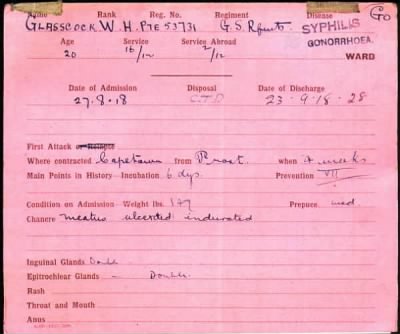 Name Rank Reg. No. Regiment Disease Go
GLASSCOCK W. H. PTE 53731 G.S. Rfmts SYPHILIS
GONORRHOEA.
Age Service Service Abroad WARD
20 16/12 2/12
Date of Admission Disposal Date of Discharge
27.8.18 C.T.D 23-9-18-28
First Attack or Relapse
Where contracted Capetown from Prost. when 4 weeks
Main Points in History—Incubation 6 dys. Prevention Nil
Condition on Admission—Weight lbs. 147 Prepuce med.
Chancre meatus ulcerated indurated
Inguinal Glands Double
Epitrochlear Glands — Double.
Rash
Throat and Mouth
Anus